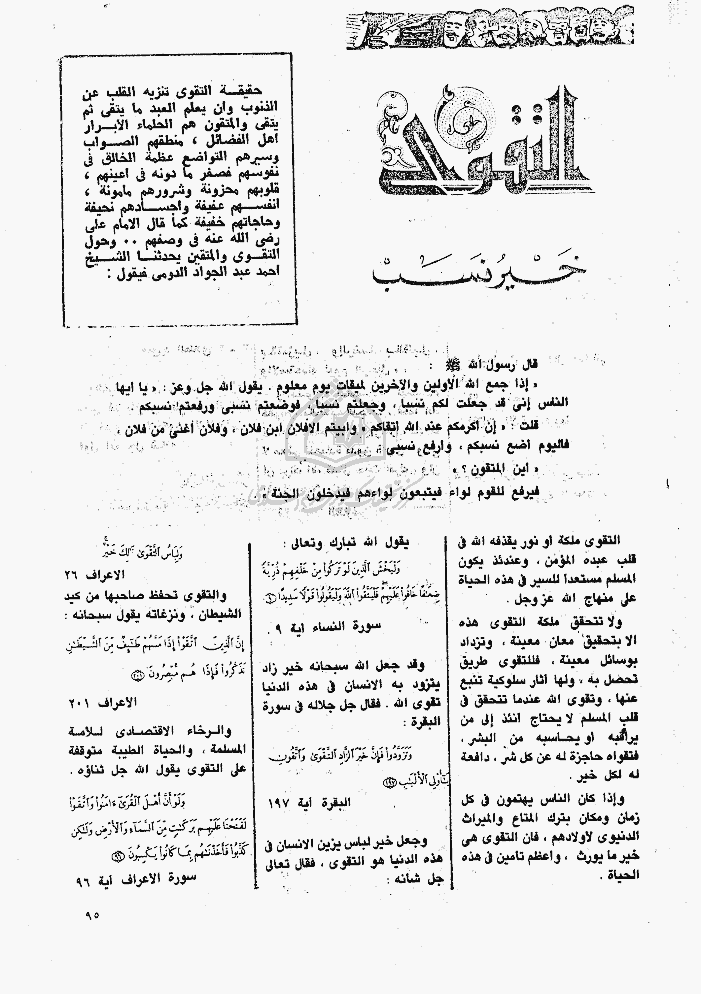 التقوى
خير نسب
حقيقة التقوى تنزيه القلب عن
الذنوب وان يعلم العبد ما يتقى ثم
يتقى والمتقون هم الحلماء الأبرار
اهل الفضائل ، منطقهم الصواب
وسيرهم التواضع عظمة الخالق فى
نفوسهم فصغر ما دونه فى اعينهم ،
قلوبهم محزونة وشرورهم مامونة ،
انفسهم عفيفة واجسادهم نحيفة
وحاجاتهم خفيفة كما قال الامام على
رضى الله عنه فى وصفهم .. وحول
التقوى والمتقين يحدثنا الشيخ
احمد عبد الجواد الدومى فيقول :
قال رسول الله ﷺ :
« إذا جمع الله الأولين والآخرين لميقات يوم معلوم . يقول الله جل وعز : « يا ايها
الناس إنى قد جعلت لكم نسبا ، وجعلتم نسبا ، فوضعتم نسبى ورفعتم نسبكم
قلت : إن أكرمكم عند الله اتقاكم ، وأبيتم الا فلان ابن فلان ، وفلان أغنى من فلان ،
فاليوم اضع نسبكم ، وارفع نسبى
« اين المتقون ؟ »
فيرفع للقوم لواء فيتبعون لواءهم فيدخلون الجنة »
التقوى ملكة او نور يقذفه الله فى
قلب عبده المؤمن ، وعندئذ يكون
المسلم مستعدا للسير فى هذه الحياة
على منهاج الله عز وجل .
ولا تتحقق ملكة التقوى هذه
الا بتحقيق معان معينة ، وتزداد
بوسائل معينة ، فللتقوى طريق
تحصل به ، ولها آثار سلوكية تنبع
عنها ، وتقوى الله عندما تتحقق فى
قلب المسلم لا يحتاج انئذ إلى من
يراقبه او يحاسبه من البشر ،
فتقواه حاجزة له عن كل شر ، دافعة
له لكل خير .
وإذا كان الناس يهتمون فى كل
زمان ومكان بترك المتاع والميراث
الدنيوى لأولادهم ، فان التقوى هى
خير ما يورث ، واعظم تامين فى هذه
الحياة .
يقول الله تبارك وتعالى :
وَلْيَخْشَ الَّذِينَ لَوْ تَرَكُوا مِنْ خَلْفِهِمْ ذُرِّيَّةً
ضِعَافًا خَافُوا عَلَيْهِمْ فَلْيَتَّقُوا اللَّهَ وَلْيَقُولُوا قَوْلًا سَدِيدًا ﴿٩﴾
سورة النساء آية ٩ .
وقد جعل الله سبحانه خير زاد
يتزود به الانسان فى هذه الدنيا
تقوى الله . فقال جل جلاله فى سورة
البقرة :
وَتَزَوَّدُوا فَإِنَّ خَيْرَ الزَّادِ التَّقْوَىٰ وَاتَّقُونِ
يَـٰٓأُولِى الْأَلْبَـٰبِ ﴿١٩٧﴾
البقرة آية ١٩٧
وجعل خير لباس يزين الانسان فى
هذه الدنيا هو التقوى ، فقال تعالى
جل شانه :
وَلِبَاسُ التَّقْوَىٰ ذَٰلِكَ خَيْرٌ
الأعراف ٢٦
والتقوى تحفظ صاحبها من كيد
الشيطان ، ونزغاته يقول سبحانه :
إِنَّ الَّذِينَ اتَّقَوْا إِذَا مَسَّهُمْ طَـٰٓئِفٌ مِّنَ الشَّيْطَـٰنِ
تَذَكَّرُوا فَإِذَا هُم مُّبْصِرُونَ ﴿٢٠١﴾
الأعراف ٢٠١
والرخاء الاقتصادى للأمة
المسلمة ، والحياة الطيبة متوقفة
على التقوى يقول الله جل ثناؤه .
وَلَوْ أَنَّ أَهْلَ الْقُرَىٰٓ ءَامَنُوا وَاتَّقَوْا
لَفَتَحْنَا عَلَيْهِم بَرَكَـٰتٍ مِّنَ السَّمَآءِ وَالْأَرْضِ وَلَـٰكِن
كَذَّبُوا فَأَخَذْنَـٰهُم بِمَا كَانُوا يَكْسِبُونَ ﴿٩٦﴾
سورة الأعراف آية ٩٦
٩٥